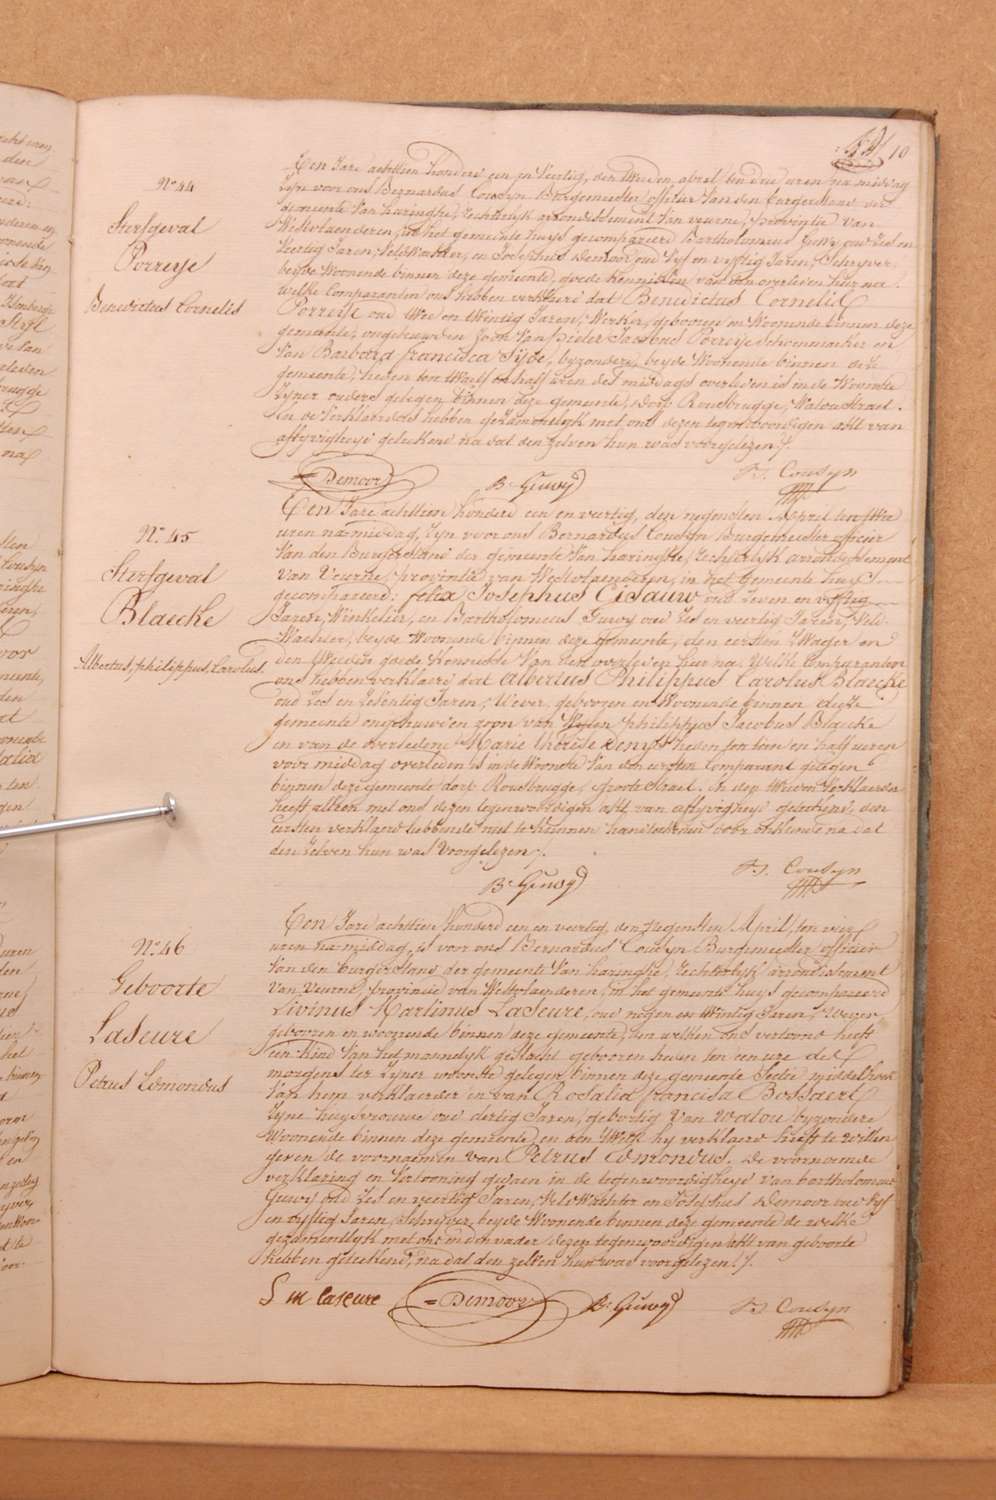 10
N.º 44
Sterfgeval
Porreye
Benedictus Cornelis
Een Jare achttien honderd een en veertig, den tweeden april ten drie uren na middag
Zyn voor ons Bernardus Cousyn Burgemeester officier van den burgerstand der
gemeente van haringhe, rechterlyk arrondissement van veurne, provincie van
Westvlaenderen, in het gemeente huys gecompareerd Bartholomeus Geuvy, oud zes en
veertig Jaren, Veldwachter, en Josephus Demoor oud Vyf en vyftig Jaren, Schryver
beyde Woonende binnen deze gemeente, goede kennissen van den overleden hier na.
welke Comparanden ons hebben verklaerd dat Benedictus Cornelis
Porreye oud twee en twintig Jaren, Werker, gebooren en Woonende binnen deze
gemeente, ongehuwden zoon van pieter Jacobus Porreye schoenmaeker en
van Barbara francisca Syde, byzondere, beyde Woonende binnen deze
gemeente, heden ten twaelf en half uren des middags overleden is in de Woonste
zyner ouders gelegen binnen deze gemeente, dorp Rousbrugge, Watoustraet.
En de Verklaerders hebben gezamentlyk met ons dezen tegenwoordigen akt van
afsyvigheyd geteekend na dat den zelven hun was voorgelezen ./.
Demoor B. Geuvy B. Cousyn
N.º 45
Sterfgeval
Blaecke
Albertus, philippus, Carolus
Een Jare achttien honderd een en veertig, den negensten April ten twee
uren na middag, Zyn voor ons Bernardus Cousyn Burgemeester officier
van den Burgerstand der gemeente van haringhe, rechterlyk arrondissement
van Veurne, provintie van Westvlaenderen, in het gemeente huys
gecompareerd: felix Josephus Cisauw oud zeven en vyftig
Jaren, Winkelier, en Bartholomeus Geuvy oud Zes en veertig Jaren, Veld-
Wachter, beyde Woonende binnen deze gemeente, den eersten Zwager en
den tweeden goede Kennisse van den overleden hier na. Welke Comparanden
ons hebben verklaerd dat Albertus Philippus Carolus Blaecke
oud Zes en Zeventig Jaren, Wever, gebooren en Woonende binnen deze
gemeente ongehuwden zoon van philippus Jacobus Blaecke
en van de overledene Marie therese Dempt heden ten tien en half uren
voor middag overleden is in de Woonste van den eersten Comparant gelegen
binnen deze gemeente dorp Rousbrugge, groote straet. En den tweeden Verklaerder
heeft alleen met ons dezen tegenwoordigen akt van aflyvigheyd geteekend, den
eersten verklaerd hebbende niet te kunnen handteekenen door onkunde na dat
den zelven hun was voorgelezen ./.
B. Geuvy B. Cousyn
N.º 46
Geboorte
Laseure
Petrus Edmondus
Een Jare achttien honderd een en veertig, den Negensten April, ten vier
uren na middag, is voor ons Bernardus Cousyn Burgemeester officier
van den burgerstand der gemeente van haringhe, rechterlyk arrondissement
van Veurne, provincie van Westvlaenderen, in het gemeente huys gecompareerd
Livinus Martinus Laseure, oud negen en twintig Jaren, Wever
gebooren en woonende binnen deze gemeente, den welken ons vertoond heeft
een kind van het mannelyk geslacht gebooren heden ten een ure des
morgens ter zyner woonste gelegen binnen deze gemeente Sectie middelhoek
van hem verklaerder en van Rosalia francisca Bossaert
Zyne huysvrouwe oud dertig Jaren, gebortig van watou byzondere
Woonende binnen deze gemeente, en aen Welk hy verklaerd heeft te willen
geven de voornaemen van Petrus Edmondus. De voornoemde
verklaring en Vertooning gedaen in de tegenwoordigheyd van bartholomeus
Geuvy oud Zes en veertig Jaren, Veld Wachter en Josephus Demoor oud Vyf
en vyftig Jaren, schryver, beyde Woonende binnen deze gemeente de welke
gezamentlyk met ons en den vader dezen tegenwoordigen akt van geboorte
hebben geteekend, na dat den zelven hun was voorgelezen ./.
L M Laseure Demoor B. Geuvy B. Cousyn